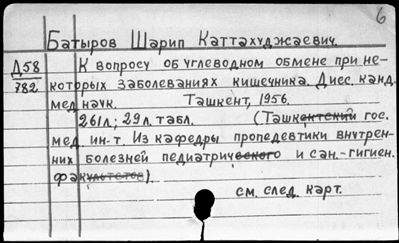 6
Батыров Шарип Каттахуджаевич.
Д58
782
К вопросу об углеводном обмене при не-
которых заболеваниях кишечника. Дисс. канд.
мед. наук. Ташкент, 1956.
261 л.; 29 л. табл. (Ташкентский гос.
мед. ин-т. Из кафедры пропедевтики внутрен-
них болезней педиатрического и сан.-гигиен.
факультетов).
см. след. карт.